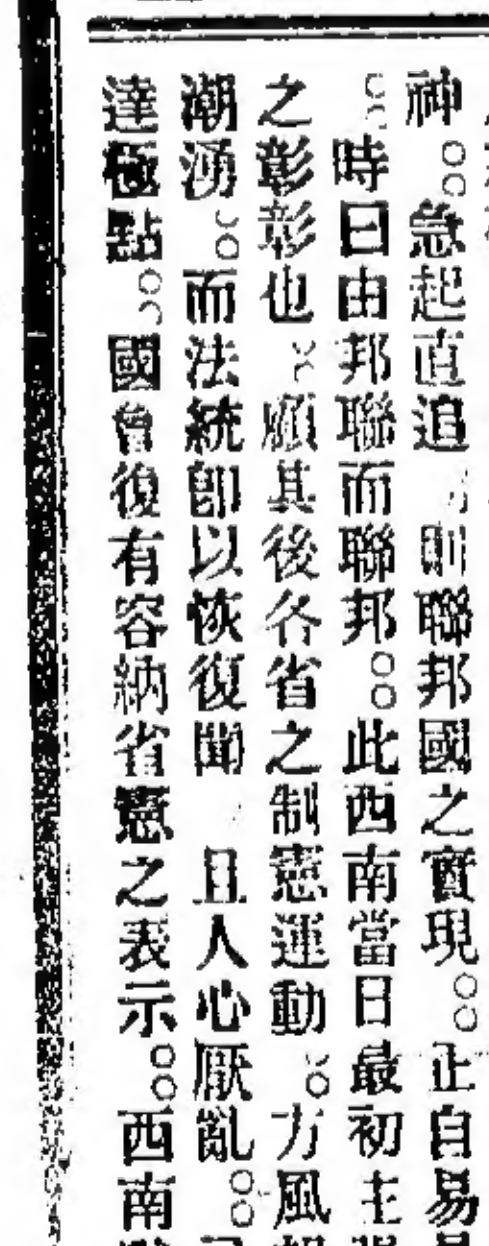 神。急起直追。則聯邦國之實現。正自易
。時日由邦聯而聯邦。此西南當日最初主
之彰彰也。顧其後各省之制憲運動。方風
潮湧。而法統卽以恢復聞。且人心厭亂。
達極點。國會復有容納省憲之表示。西南